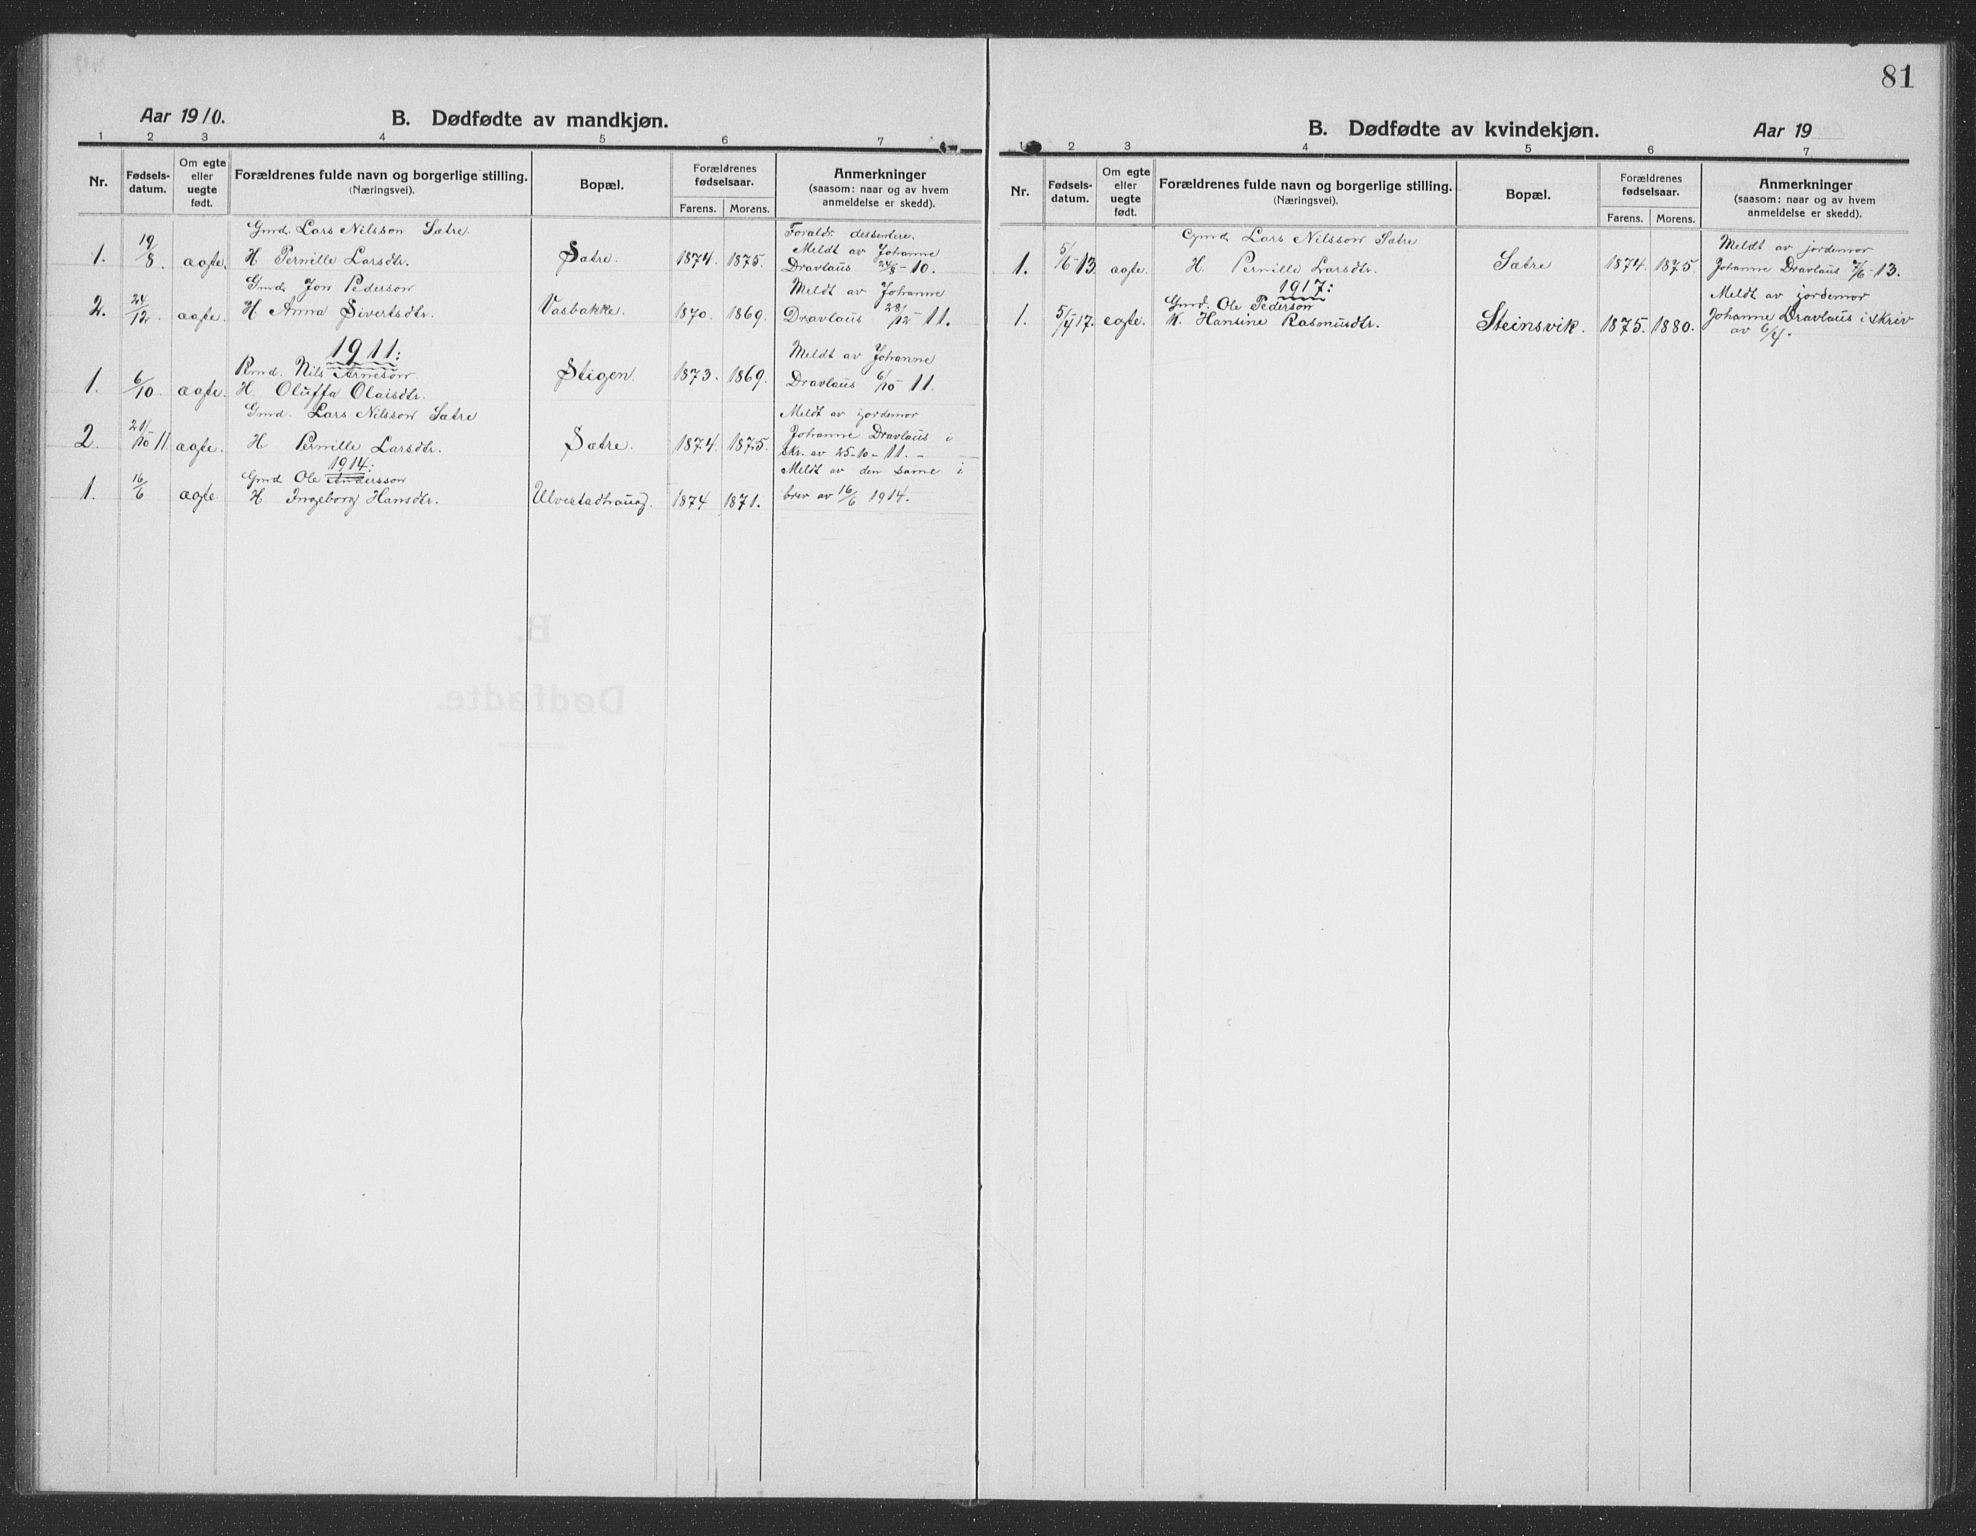 81
Aar 1910. B. Dødfødte av mandkjøn.
1 2 3 4 5 6 7
Nr. Fødsels-datum. Om egte eller uegte født. Forældrenes fulde navn og borgerlige stilling. (Næringsvei). Bopæl. Forældrenes fødselsaar. Farens. Morens. Anmerkninger (saasom: naar og av hvem anmeldelse er skedd).
Gmd. Lars Nilsson Sætre. Foræld. dessentere.
1. 19/8. ægte. H Pernille Larsdtr. Sætre. 1874. 1875. Meldt av Johanne
Dravlaus 24/8-10.
Gmd. Jon Pederson Meldt av Johanne
2. 24/12 ægte. H Anna Sivertsdtr. Vasbakke. 1870. 1869. Dravlaus 28/12-11.
1911:
Rmd. Nils Arneson Meldt av Johanne
1. 6/10 ægte. H. Oluffa Olaisdtr. Stigen. 1873. 1869. Dravlaus 6/10-11.
Gmd. Lars Nilsson Sætre Meldt av jordemor
2. 21/10 11 ægte. H Pernille Larsdtr. Sætre. 1874. 1875. Johanne Dravlaus i
skr. av 25-10-11. -
1914:
Gmd Ole Andersson Meldt av den same i
1. 16/6 ægte H Ingeborg Hansdtr. Ulvestadhaug. 1874 1871. brev av 16/6 1914.
B. Dødfødte av kvindekjøn. Aar 19
1 2 3 4 5 6 7
Nr. Fødsels-datum. Om egte eller uegte født. Forældrenes fulde navn og borgerlige stilling. (Næringsvei). Bopæl. Forældrenes fødselsaar. Farens. Morens. Anmerkninger (saasom: naar og av hvem anmeldelse er skedd).
Gmd. Lars Nilsson Sætre Meldt av jordemor
1. 5/6-13 ægte. H. Pernille Larsdtr. Sætre 1874 1875 Johanne Dravlaus 7/6-13.
1917:
Gmd. Ole Pederson Meldt av jordemor
1. 5/4 17. egte. K. Hansine Rasmusdtr. Steinsvik. 1875. 1880. Johanne Dravlaus i skriv
av 6/4.